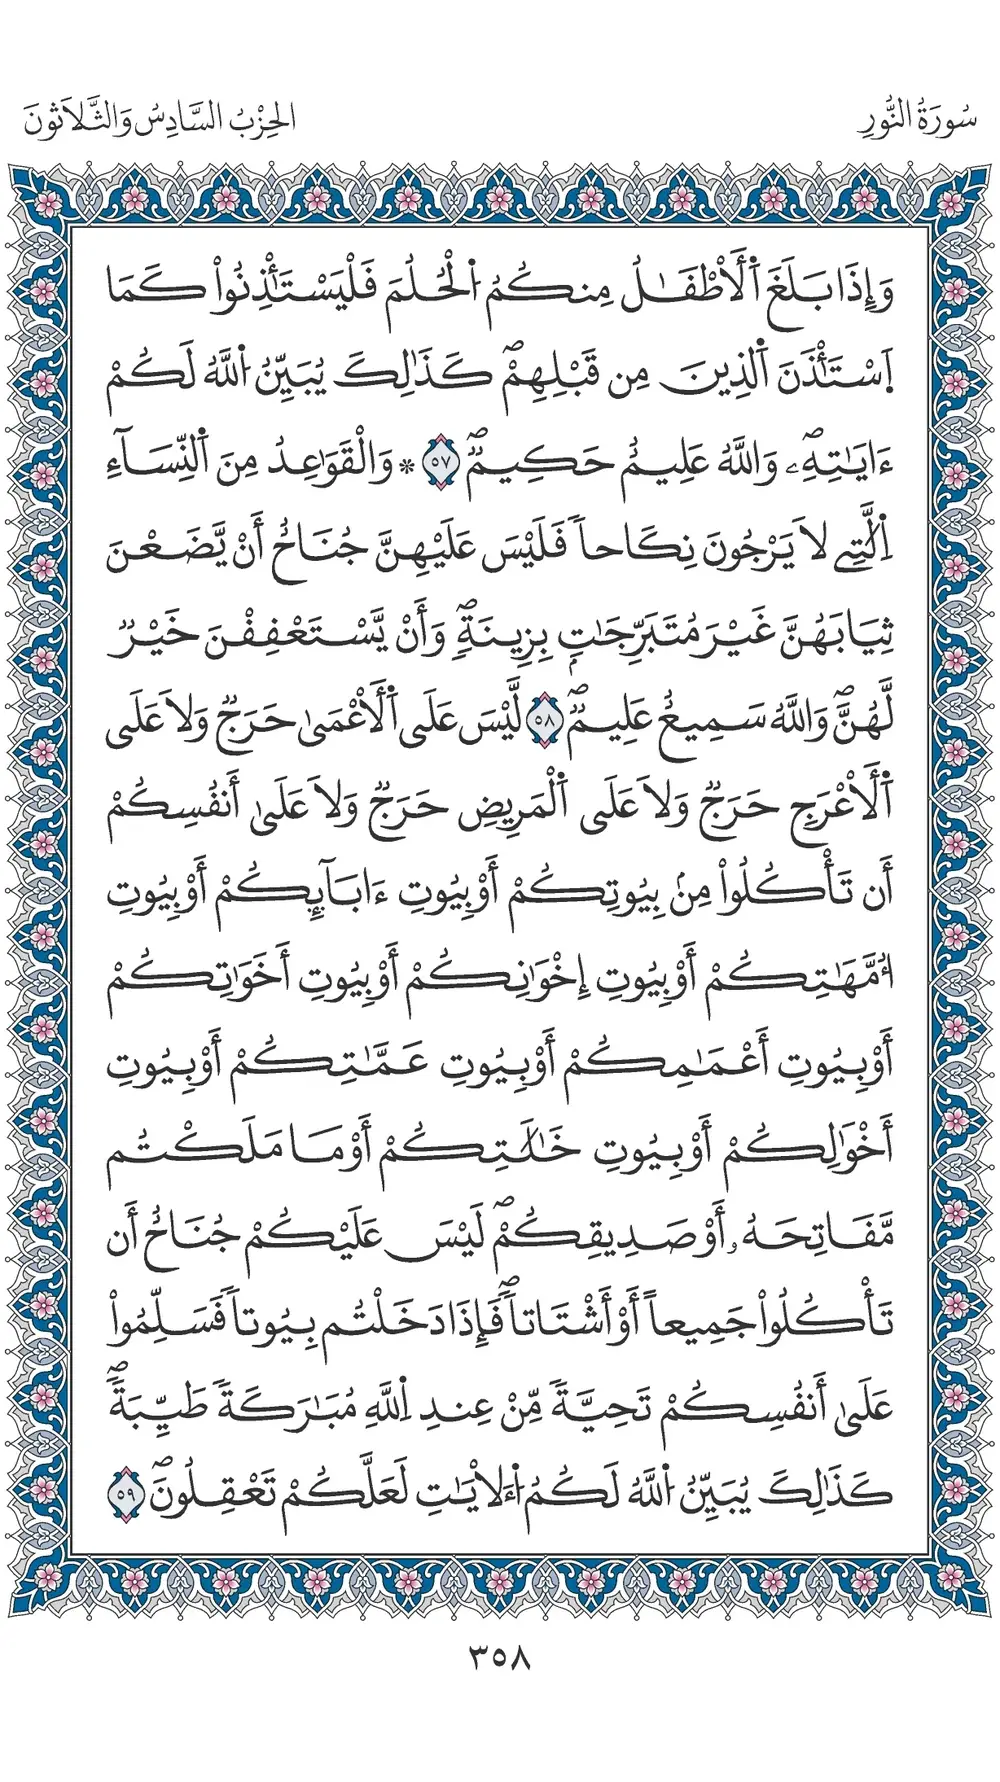 سُورَةُ النُّورِ
الحِزْبُ السَّادِسُ وَالثَّلَاثُونَ
وَإِذَا بَلَغَ اَ۬لْأَطْفَٰلُ مِنكُمُ اُ۬لْحُلُمَ فَلْيَسْتَـْٔذِنُواْ كَمَا
اَ۪سْتَـْٔذَنَ اَ۬لذِينَ مِن قَبْلِهِمْۖ كَذَٰلِكَ يُبَيِّنُ اُ۬للَّهُ لَكُمْ
ءَايَٰتِهِۦۖ وَاللَّهُ عَلِيمٌ حَكِيمٌۖ ٥٧ * وَالْقَوَٰعِدُ مِنَ اَ۬لنِّسَآءِ
اِ۬لَّٰتِے لَا يَرْجُونَ نِكَاحاٗ فَلَيْسَ عَلَيْهِنَّ جُنَاحٌ أَنْ يَّضَعْنَ
ثِيَابَهُنَّ غَيْرَ مُتَبَرِّجَٰتِۢ بِزِينَةٖۖ وَأَنْ يَّسْتَعْفِفْنَ خَيْرٞ
لَّهُنَّۖ وَاللَّهُ سَمِيعٌ عَلِيمٞۖ ٥٨ لَّيْسَ عَلَى اَ۬لْأَعْمَىٰ حَرَجٞ وَلَا عَلَى
اَ۬لْأَعْرَجِ حَرَجٞ وَلَا عَلَى اَ۬لْمَرِيضِ حَرَجٞ وَلَا عَلَىٰ أَنفُسِكُمْ
أَن تَأْكُلُواْ مِنۢ بِيُوتِكُمْ أَوْ بِيُوتِ ءَابَآئِكُمْ أَوْ بِيُوتِ
أُمَّهَٰتِكُمْ أَوْ بِيُوتِ إِخْوَٰنِكُمْ أَوْ بِيُوتِ أَخَوَٰتِكُمْ
أَوْ بِيُوتِ أَعْمَٰمِكُمْ أَوْ بِيُوتِ عَمَّٰتِكُمْ أَوْ بِيُوتِ
أَخْوَٰلِكُمْ أَوْ بِيُوتِ خَٰلَٰتِكُمْ أَوْ مَا مَلَكْتُم
مَّفَاتِحَهُۥ أَوْ صَدِيقِكُمْۖ لَيْسَ عَلَيْكُمْ جُنَاحٌ أَن
تَأْكُلُواْ جَمِيعاً أَوْ أَشْتَاتاٗۖ فَإِذَا دَخَلْتُم بِيُوتاٗ فَسَلِّمُواْ
عَلَىٰ أَنفُسِكُمْ تَحِيَّةٗ مِّنْ عِندِ اِ۬للَّهِ مُبَٰرَكَةٗ طَيِّبَةٗۖ
كَذَٰلِكَ يُبَيِّنُ اُ۬للَّهُ لَكُمُ اُ۬لْأٓيَٰتِ لَعَلَّكُمْ تَعْقِلُونَۖ ٥٩
٣٥٨